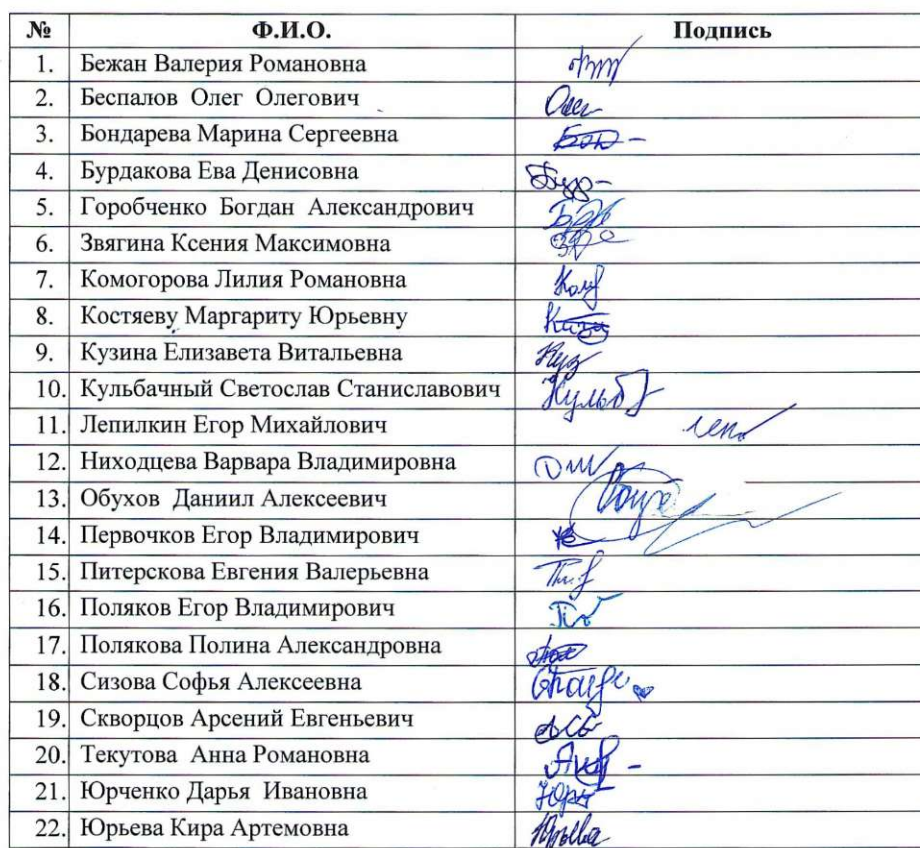 № Ф.И.О. Подпись
1. Бежан Валерия Романовна
2. Беспалов Олег Олегович Олег
3. Бондарева Марина Сергеевна
4. Бурдакова Ева Денисовна
5. Горобченко Богдан Александрович
6. Звягина Ксения Максимовна
7. Комогорова Лилия Романовна
8. Костяеву Маргариту Юрьевну
9. Кузина Елизавета Витальевна Куз
10. Кульбачный Светослав Станиславович Кульб
11. Лепилкин Егор Михайлович леп
12. Ниходцева Варвара Владимировна
13. Обухов Даниил Алексеевич
14. Первочков Егор Владимирович
15. Питерскова Евгения Валерьевна
16. Поляков Егор Владимирович
17. Полякова Полина Александровна
18. Сизова Софья Алексеевна
19. Скворцов Арсений Евгеньевич
20. Текутова Анна Романовна
21. Юрченко Дарья Ивановна
22. Юрьева Кира Артемовна Юрьева